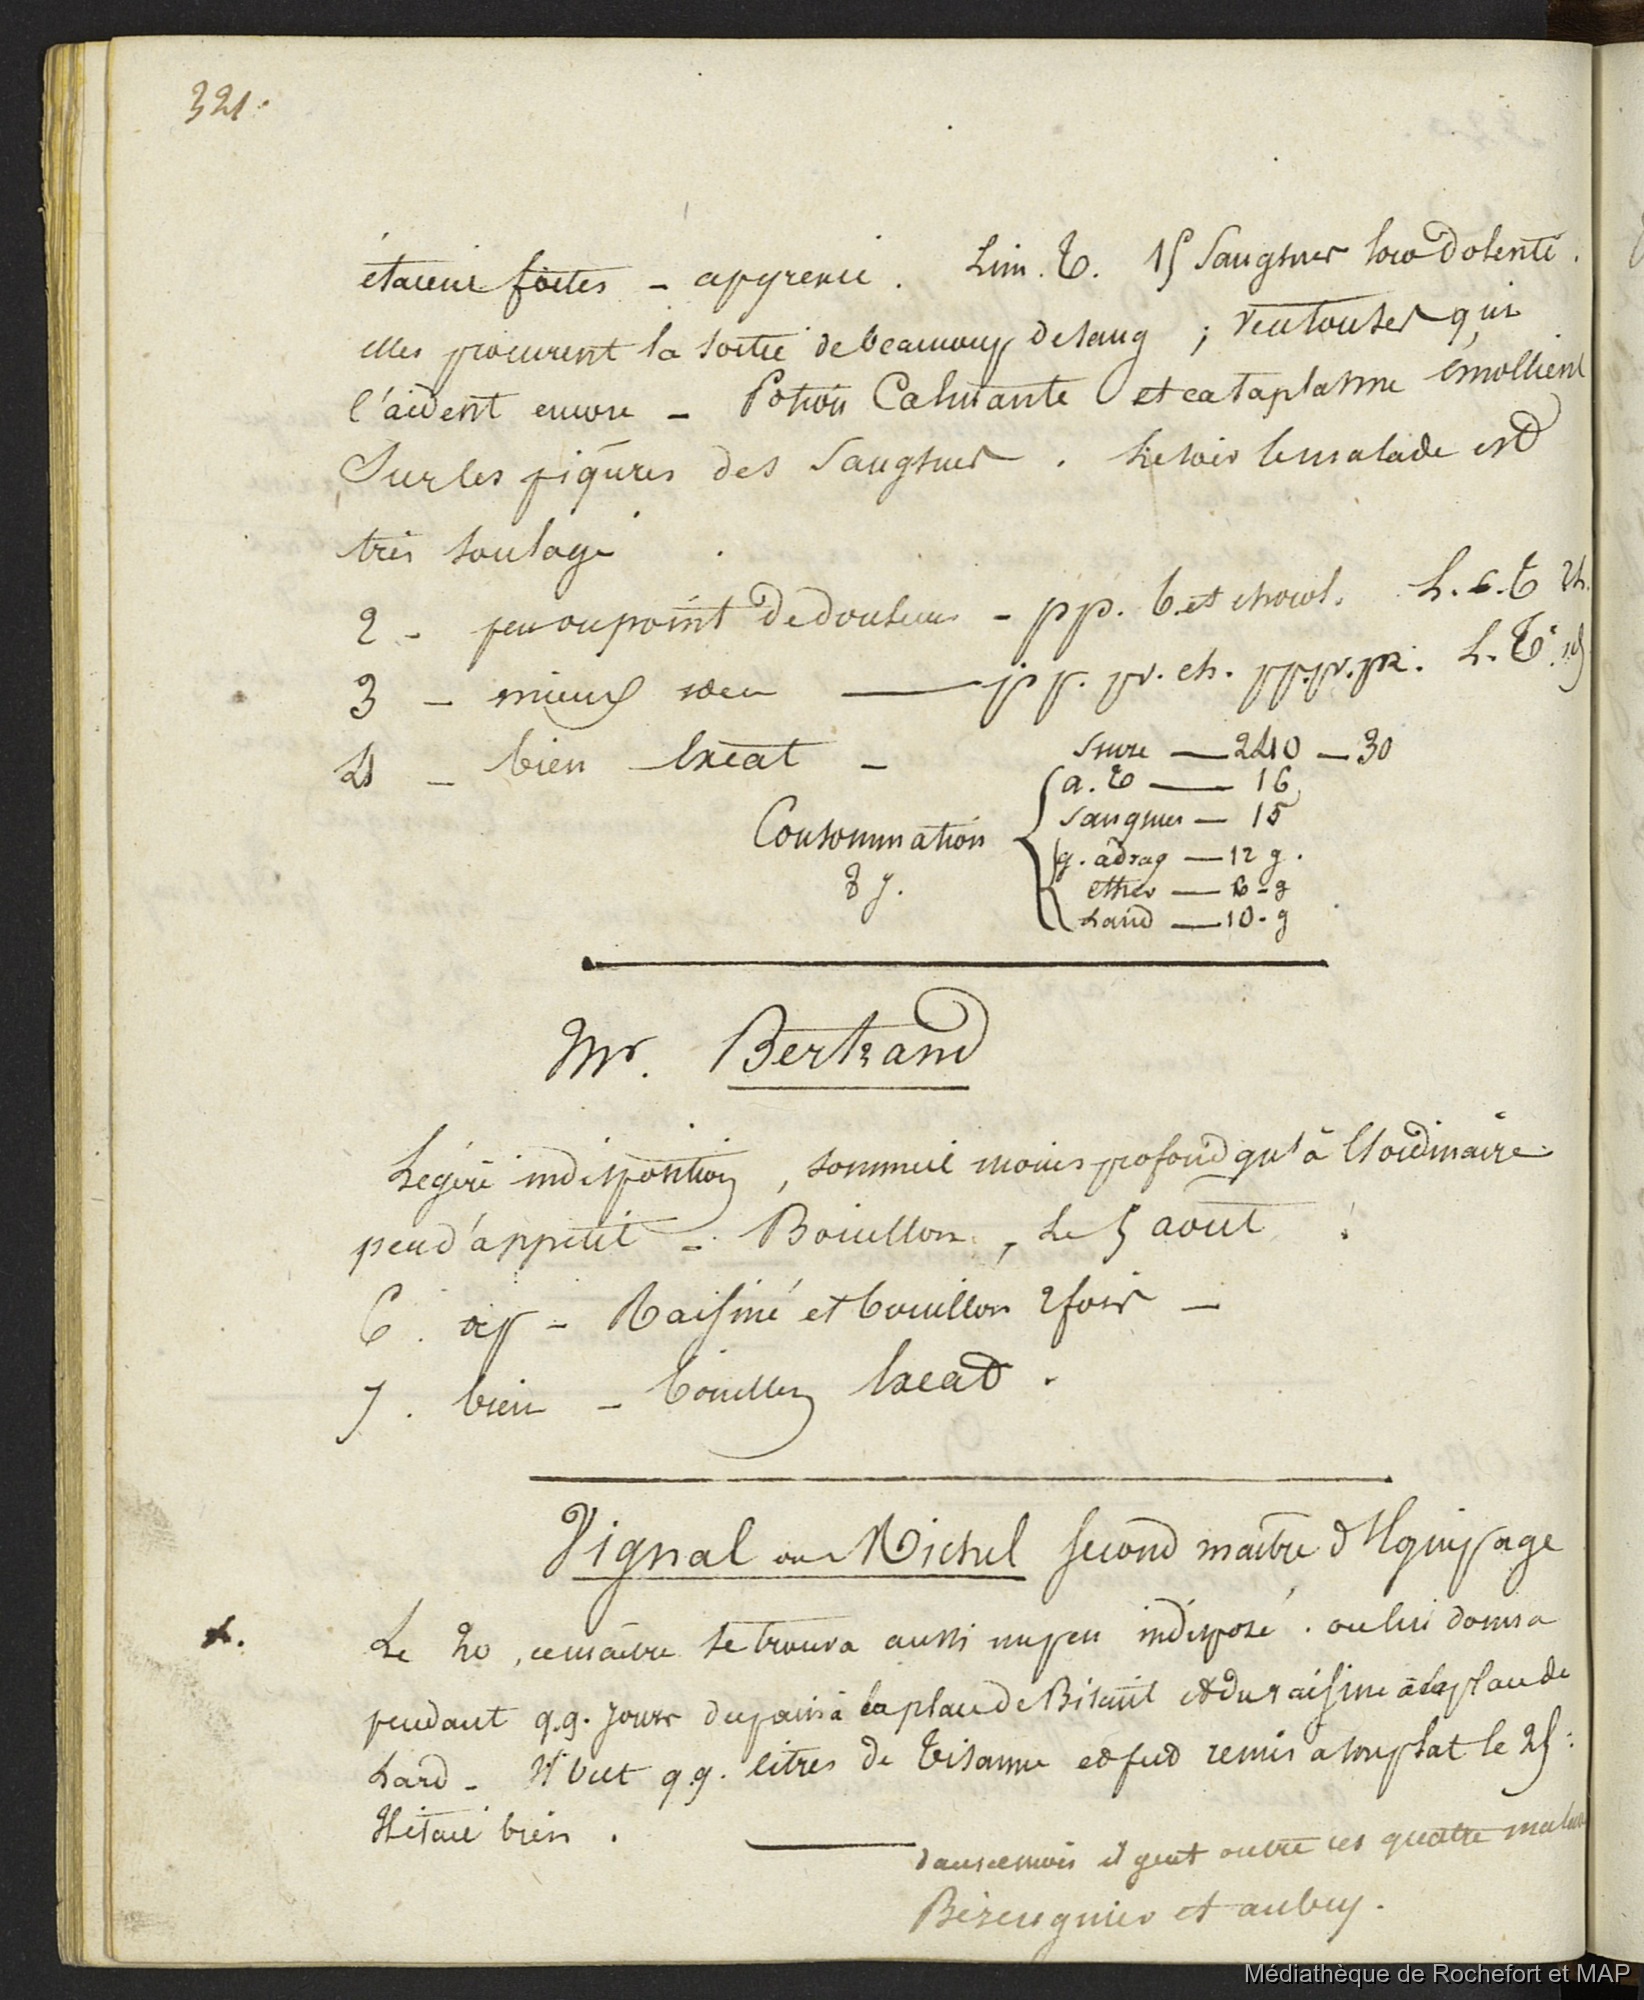 321.
étaient fortes - apyrexie. Lim. T. 15 Sangsues loco dolenti.
elles procurent la sortie de beaucoup de sang ; ventouses qui
l'aident encore - Potion Calmante et cataplasme émollient
Sur les piqûres des Sangsues. Le soir le malade est
très soulagé.
2 - peu ou point de douleurs - pp. b. et chocol. L. c. T 2h.
3 - mieux - pp. pr. ch. pp. pr. L. T.
4 - bien Exeat -
Sucre - 240 - 30
a. T - 16
Sangsues - 15
Consommation
g. adrag - 12 g.
8 j.
ether - 6 - g
Laud - 10 - g
Mr. Bertrand
Légère indisposition, sommeil moins profond qu'à l'ordinaire
peu d'appétit - Bouillon, Le 5 aout.
6. - Raisiné et bouillon 2 fois -
7. bien - bouillon Exeat.
Vignal ou Michel Second maître d'Equipage
Le 20, ce maître se trouva aussi un peu indisposé. on lui donna
pendant q.q. jours du pain à la place de Biscuit et du raisiné à la place de
Lard - Il but q.q. litres de Tisanne et fut remis a son plat le 25.
Il était bien.
dans ce mois il y eut outre ces quatre malades
Berengnier et aubry.
Médiathèque de Rochefort et MAP